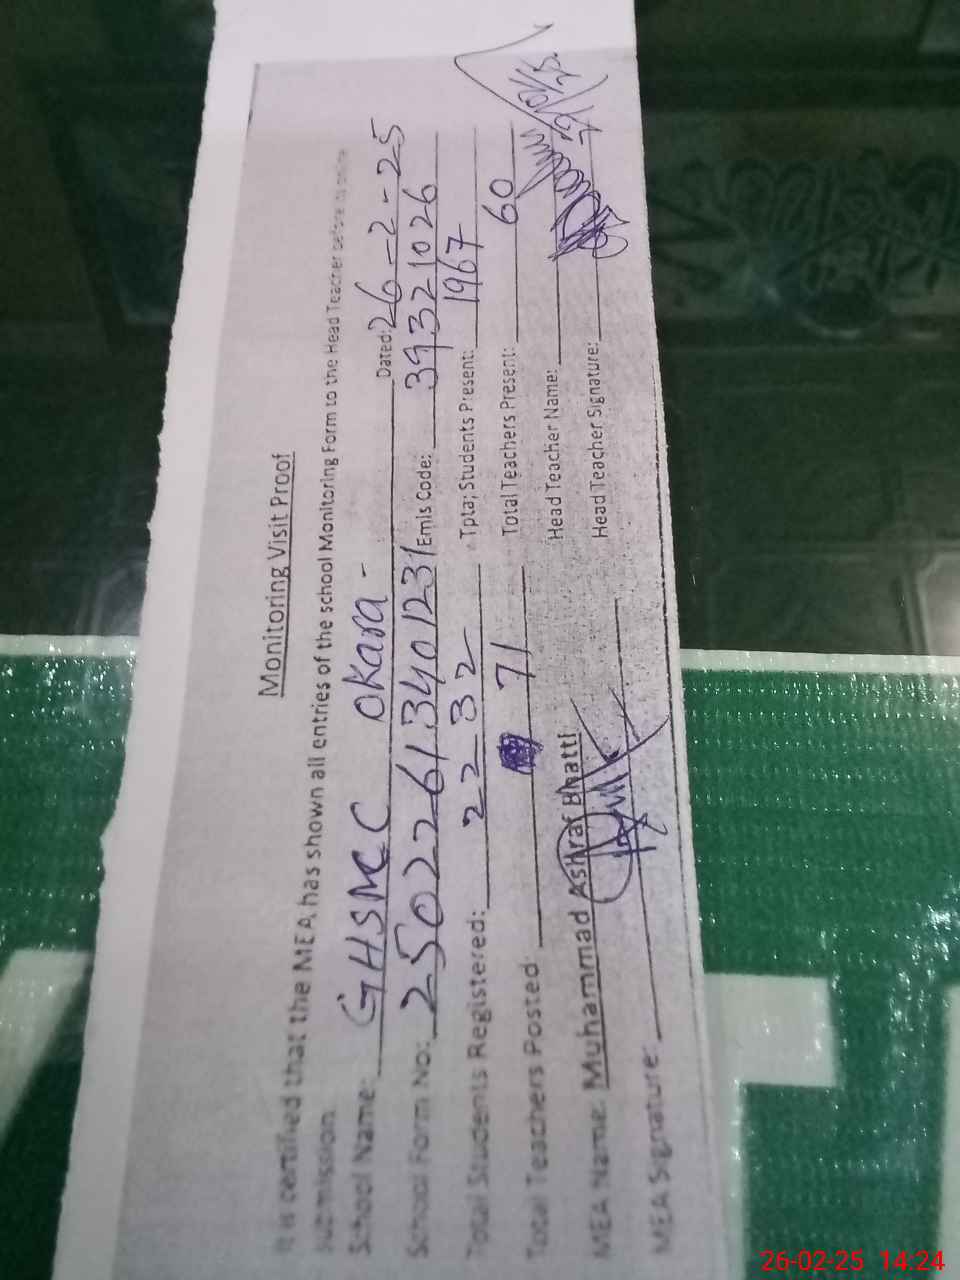 Monitoring Visit Proof
It is certified that the MEA has shown all entries of the school Monitoring Form to the Head Teacher before its online
submission.
School Name: GHSMC OKara - Dated: 26-2-25
School Form No: 250226134401231 Emls Code: 39321026
Total Students Registered: 2232 Tpta; Students Present: 1967
Total Teachers Posted 71 Total Teachers Present: 60
MEA Name: Muhammad Ashraf Bhatti Head Teacher Name:
MEA Signature: Head Teacher Signature:
26-02-25 14:24